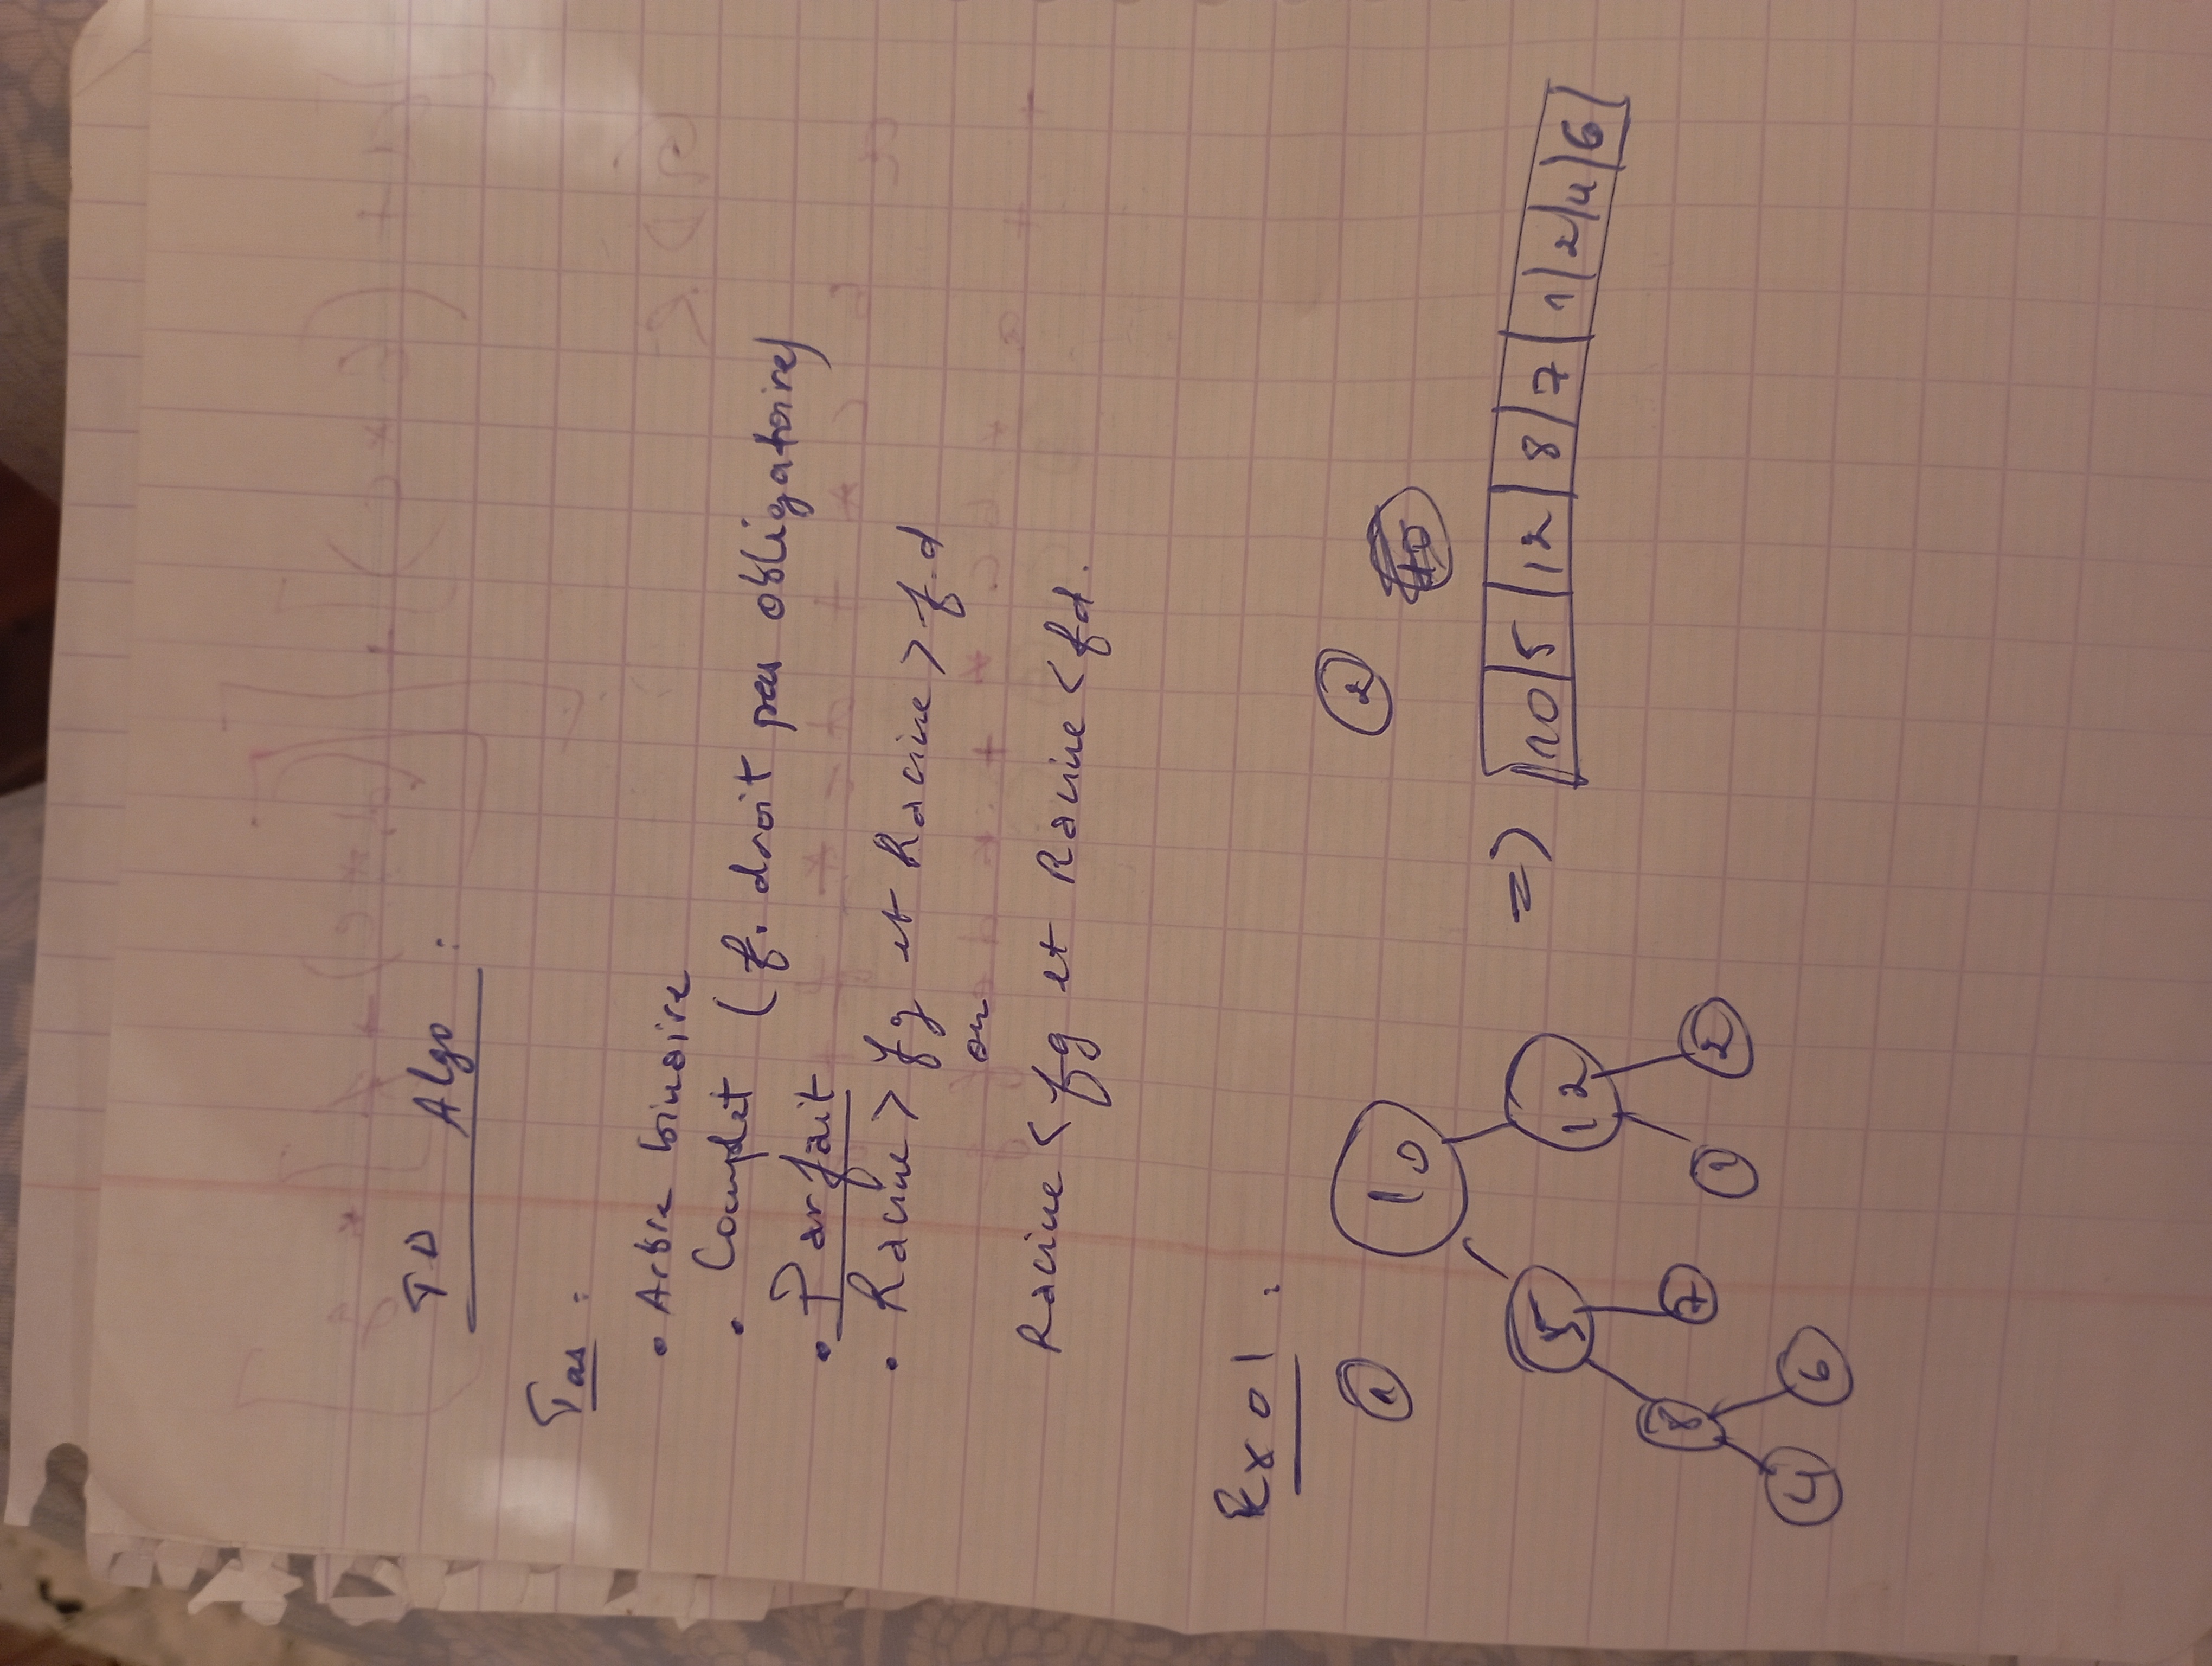 TD Algo :
Tas :
• Arbre binaire
• Complet (f. droit pas obligatoire)
• Parfait
• Racine > fg et Racine > f.d
ou
Racine < fg et Racine < fd.
Ex 01 :
① ②
10
5 12
8 7 1 2
4 6
=> 10 5 12 8 7 1 2 4 6